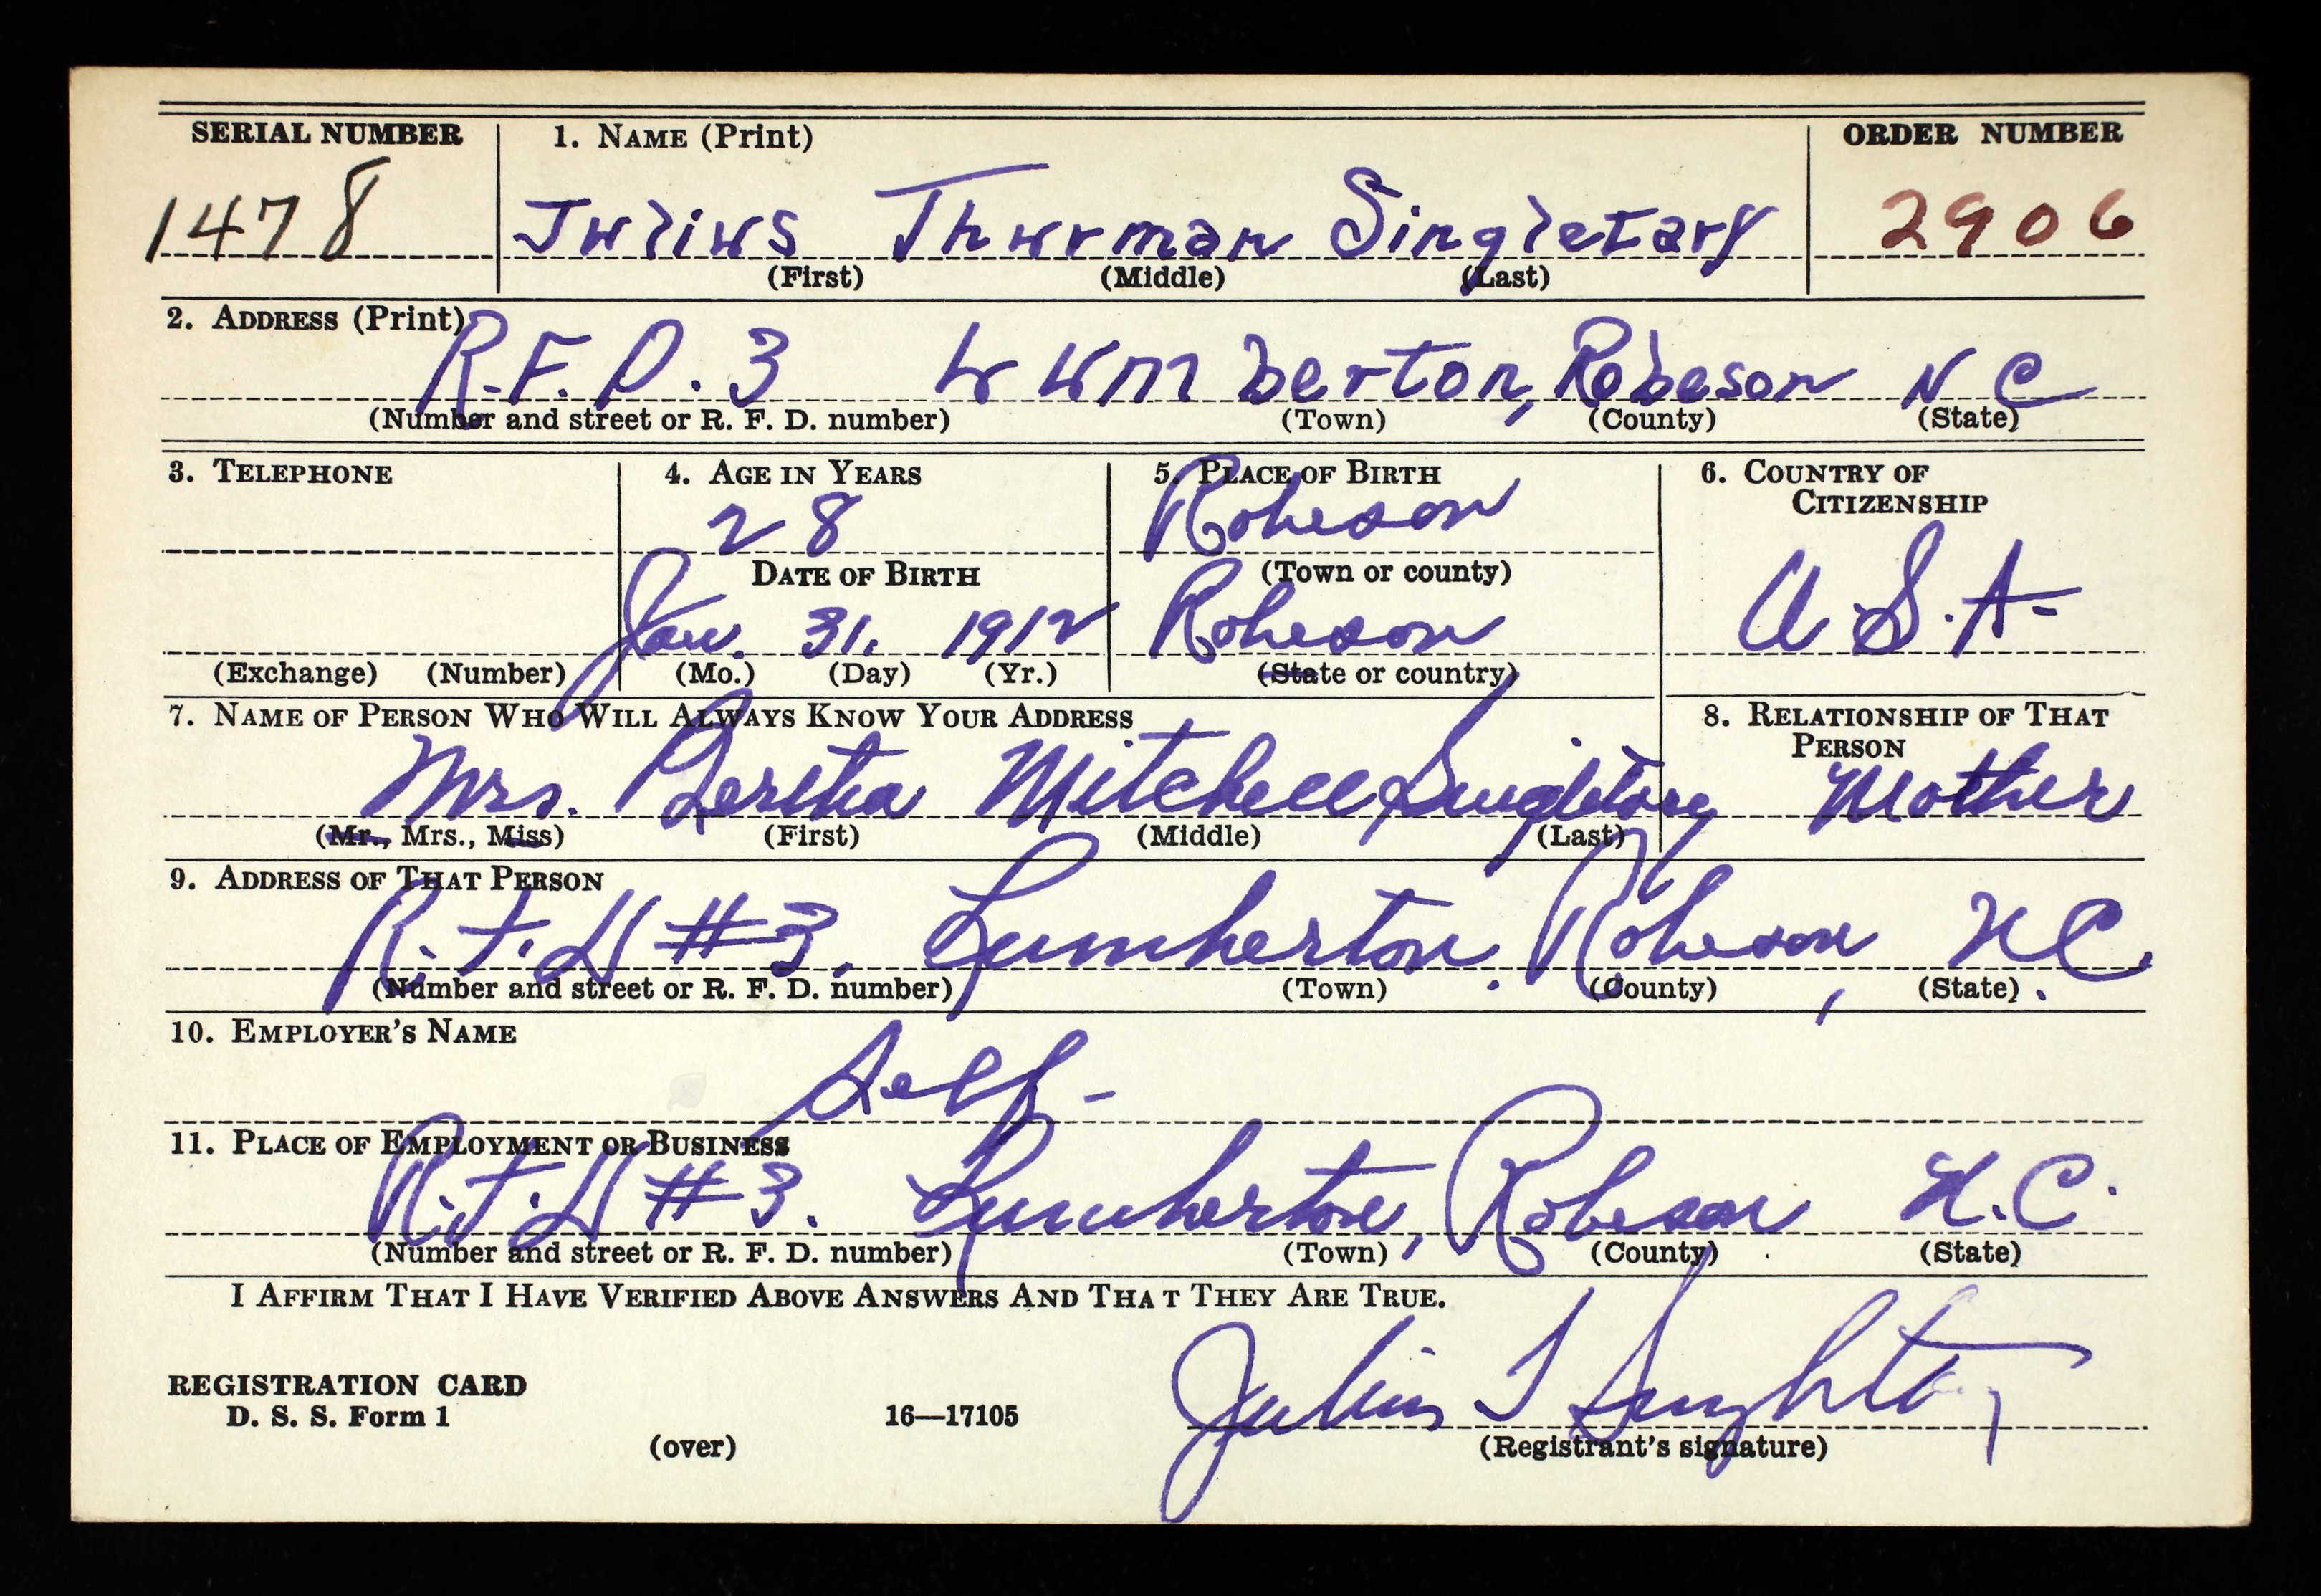 SERIAL NUMBER 1. NAME (Print) ORDER NUMBER
1478 Julius Thurman Singletary 2906
(First) (Middle) (Last)
2. ADDRESS (Print)
R.F.D. 3 Lumberton, Robeson N C
(Number and street or R. F. D. number) (Town) (County) (State)
3. TELEPHONE 4. AGE IN YEARS 5. PLACE OF BIRTH 6. COUNTRY OF
CITIZENSHIP
28 Robeson
DATE OF BIRTH (Town or county)
Jan. 31, 1912 Robeson U.S.A.
(Exchange) (Number) (Mo.) (Day) (Yr.) (State or country)
7. NAME OF PERSON WHO WILL ALWAYS KNOW YOUR ADDRESS 8. RELATIONSHIP OF THAT
PERSON
Mrs. Bertha Mitchell Singletary Mother
(Mr., Mrs., Miss) (First) (Middle) (Last)
9. ADDRESS OF THAT PERSON
R.F.D #3. Lumberton. Robeson, N.C.
(Number and street or R. F. D. number) (Town) (County) (State)
10. EMPLOYER'S NAME
Self-
11. PLACE OF EMPLOYMENT OR BUSINESS
R.F.D #3. Lumberton, Robeson N.C.
(Number and street or R. F. D. number) (Town) (County) (State)
I AFFIRM THAT I HAVE VERIFIED ABOVE ANSWERS AND THAT THEY ARE TRUE.
Julius T Singletary
REGISTRATION CARD
D. S. S. Form 1 16—17105
(over) (Registrant's signature)